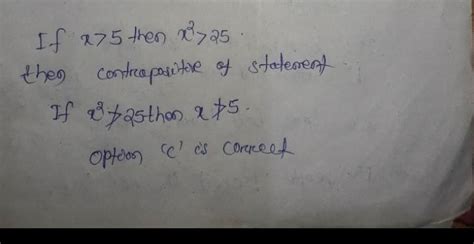 If x>5 then x²>25.
then contrapositive of statement
If x²≯25 then x≯5.
option 'c' is correct